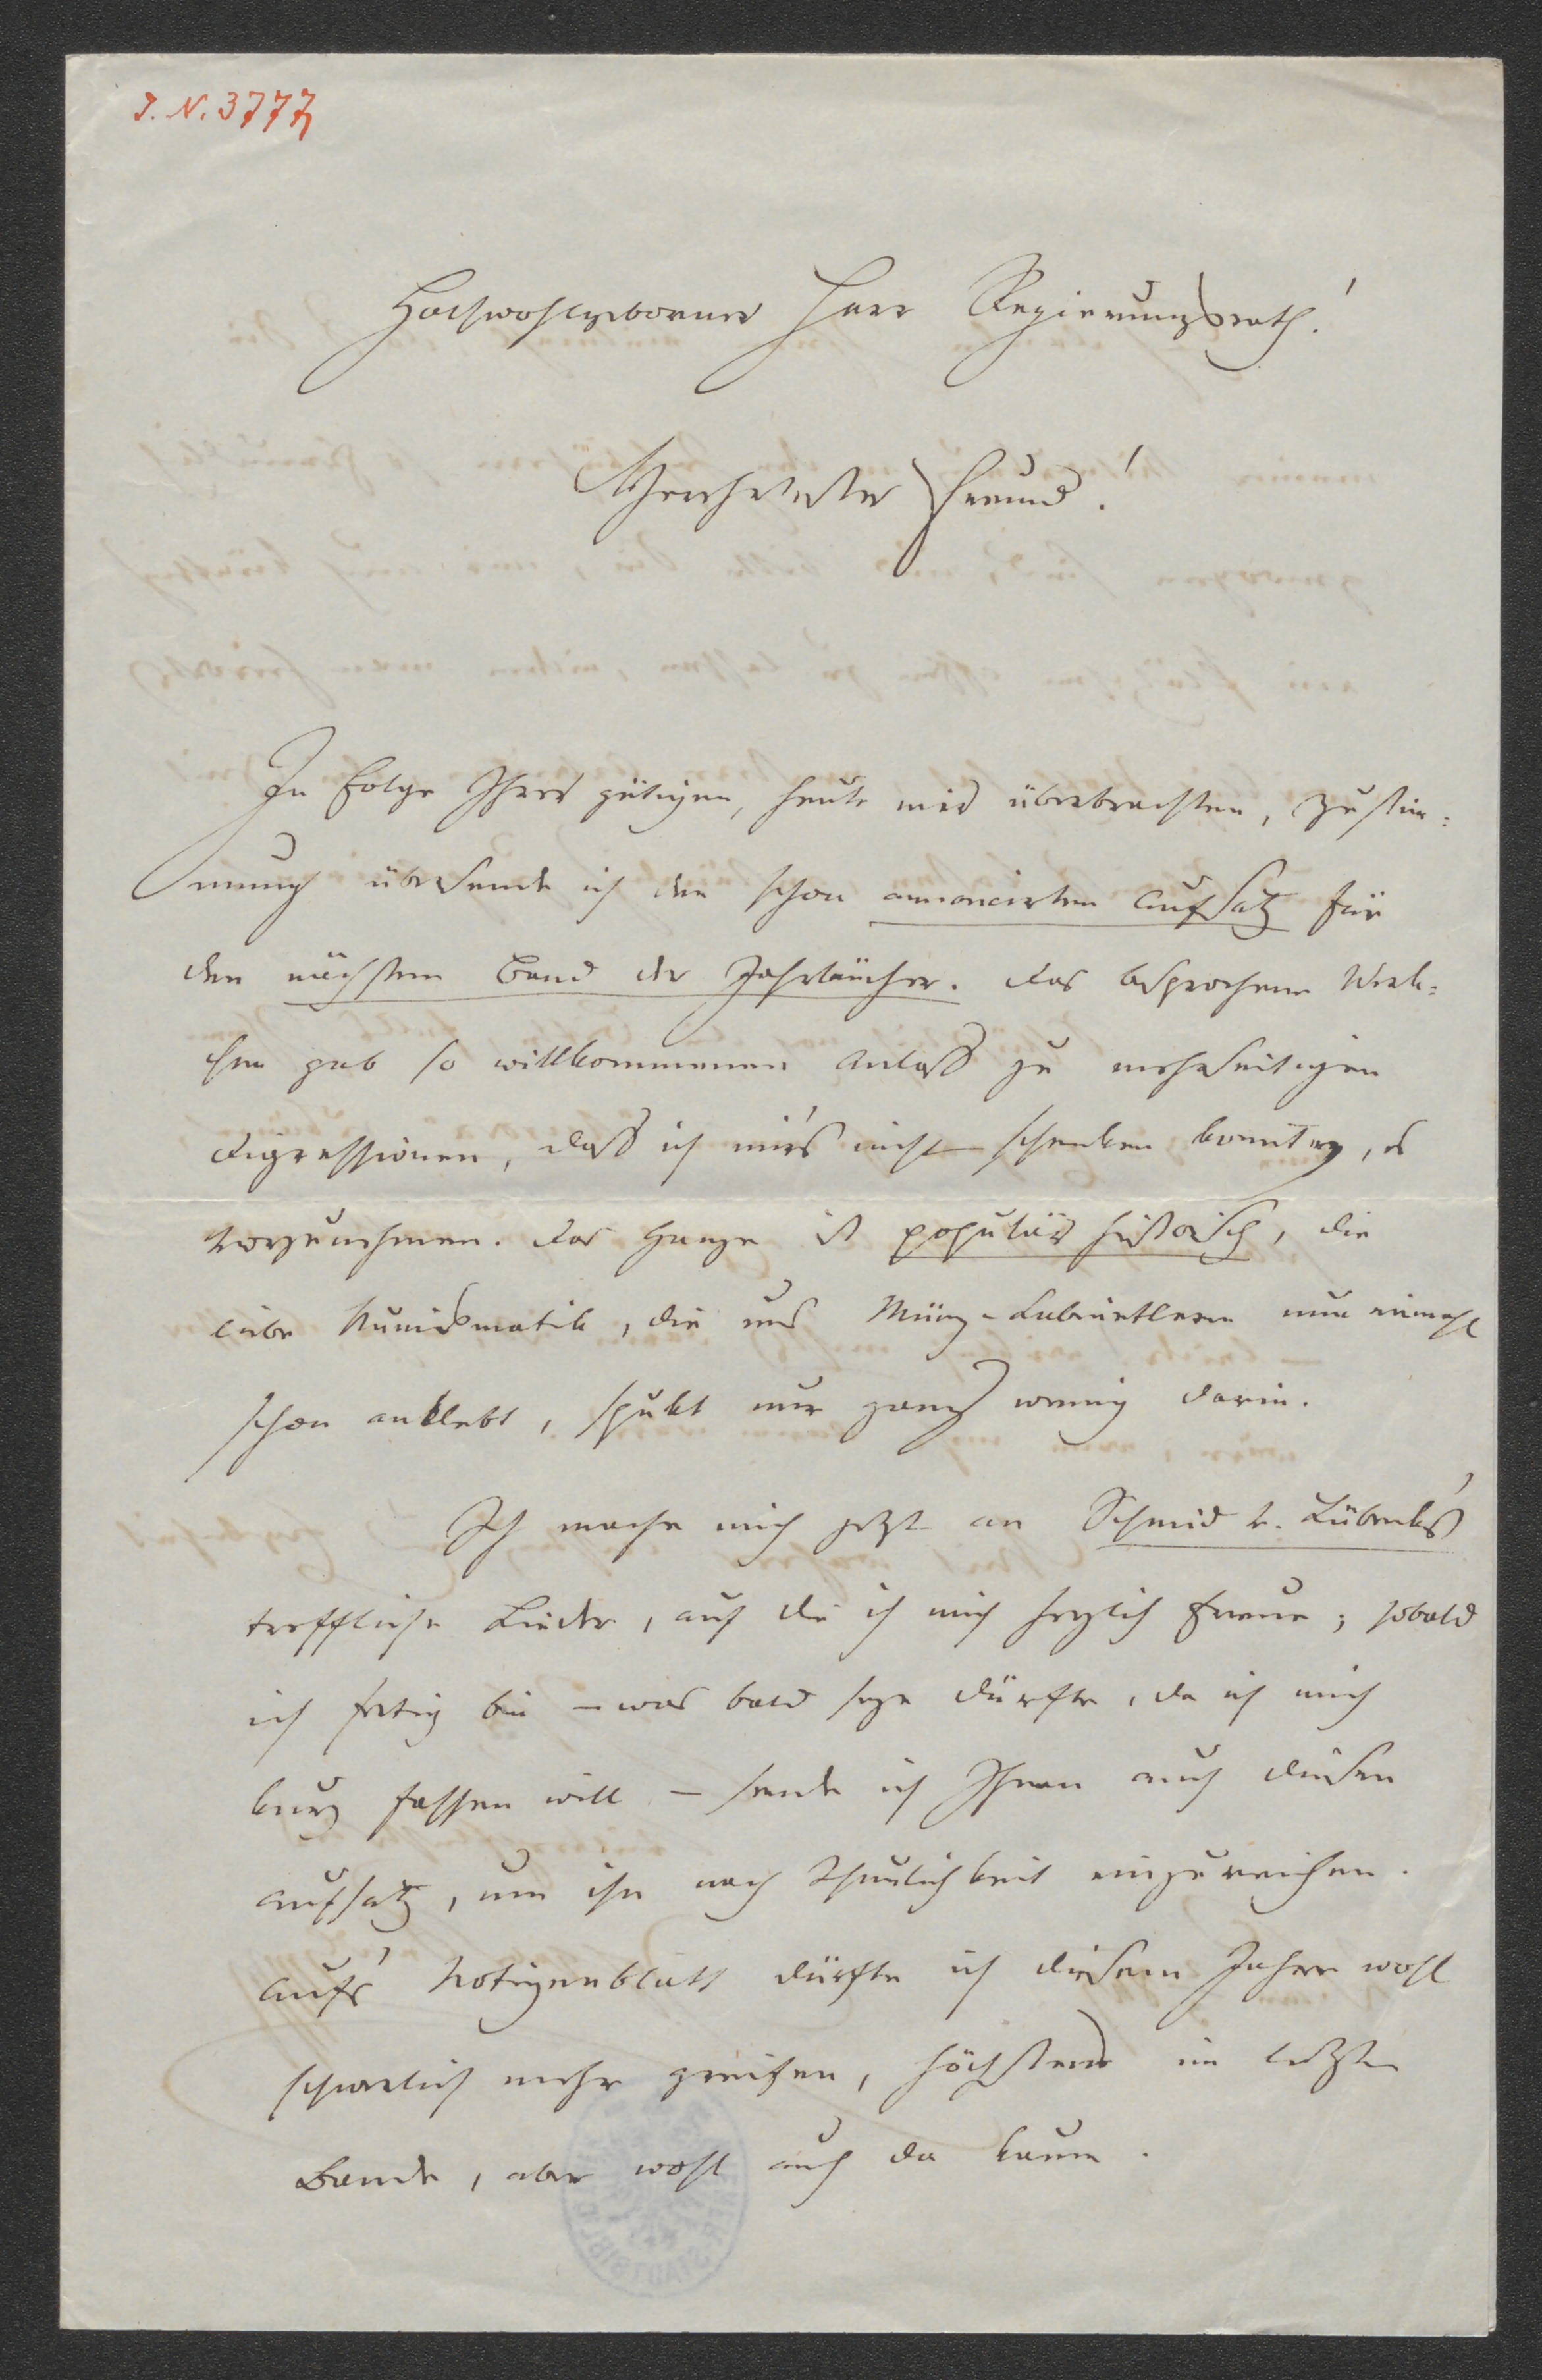 I. N. 3777
Hochwohlgeborner Herr Regierungsrath!
Verehrtester Freund!
In Folge Ihrer gütigen, heute mir überbrachten, Zustim-
mung übersende ich den schon annoncirten Aufsatz für
den nächsten Band der Jahrbücher. Das besprochene Werk-
chen gab so willkommenen Anlaß zu mehrseitigen
Digressionen, daß ich mir's nicht schenken konnte, es
vorzunehmen. Das Ganze ist populär historisch, die
liebe Numismatik, die uns Münz-Cabinetlern nun einmahl
schon anklebt, spukt nur ganz wenig darin.
Ich mache mich jetzt an Schmid v. Lübeck's
treffliche Lieder, auf die ich mich herzlich freue; sobald
ich fertig bin – was bald seyn dürfte, da ich mich
kurz fassen will – sende ich Ihnen auch diesen
Aufsatz, um ihn nach Thunlichkeit einzureihen.
Auf's Notizenblatt dürfte ich diesem Jahre wohl
schwerlich mehr greifen, höchstens im letzten
Bande, aber wohl auch da kaum.